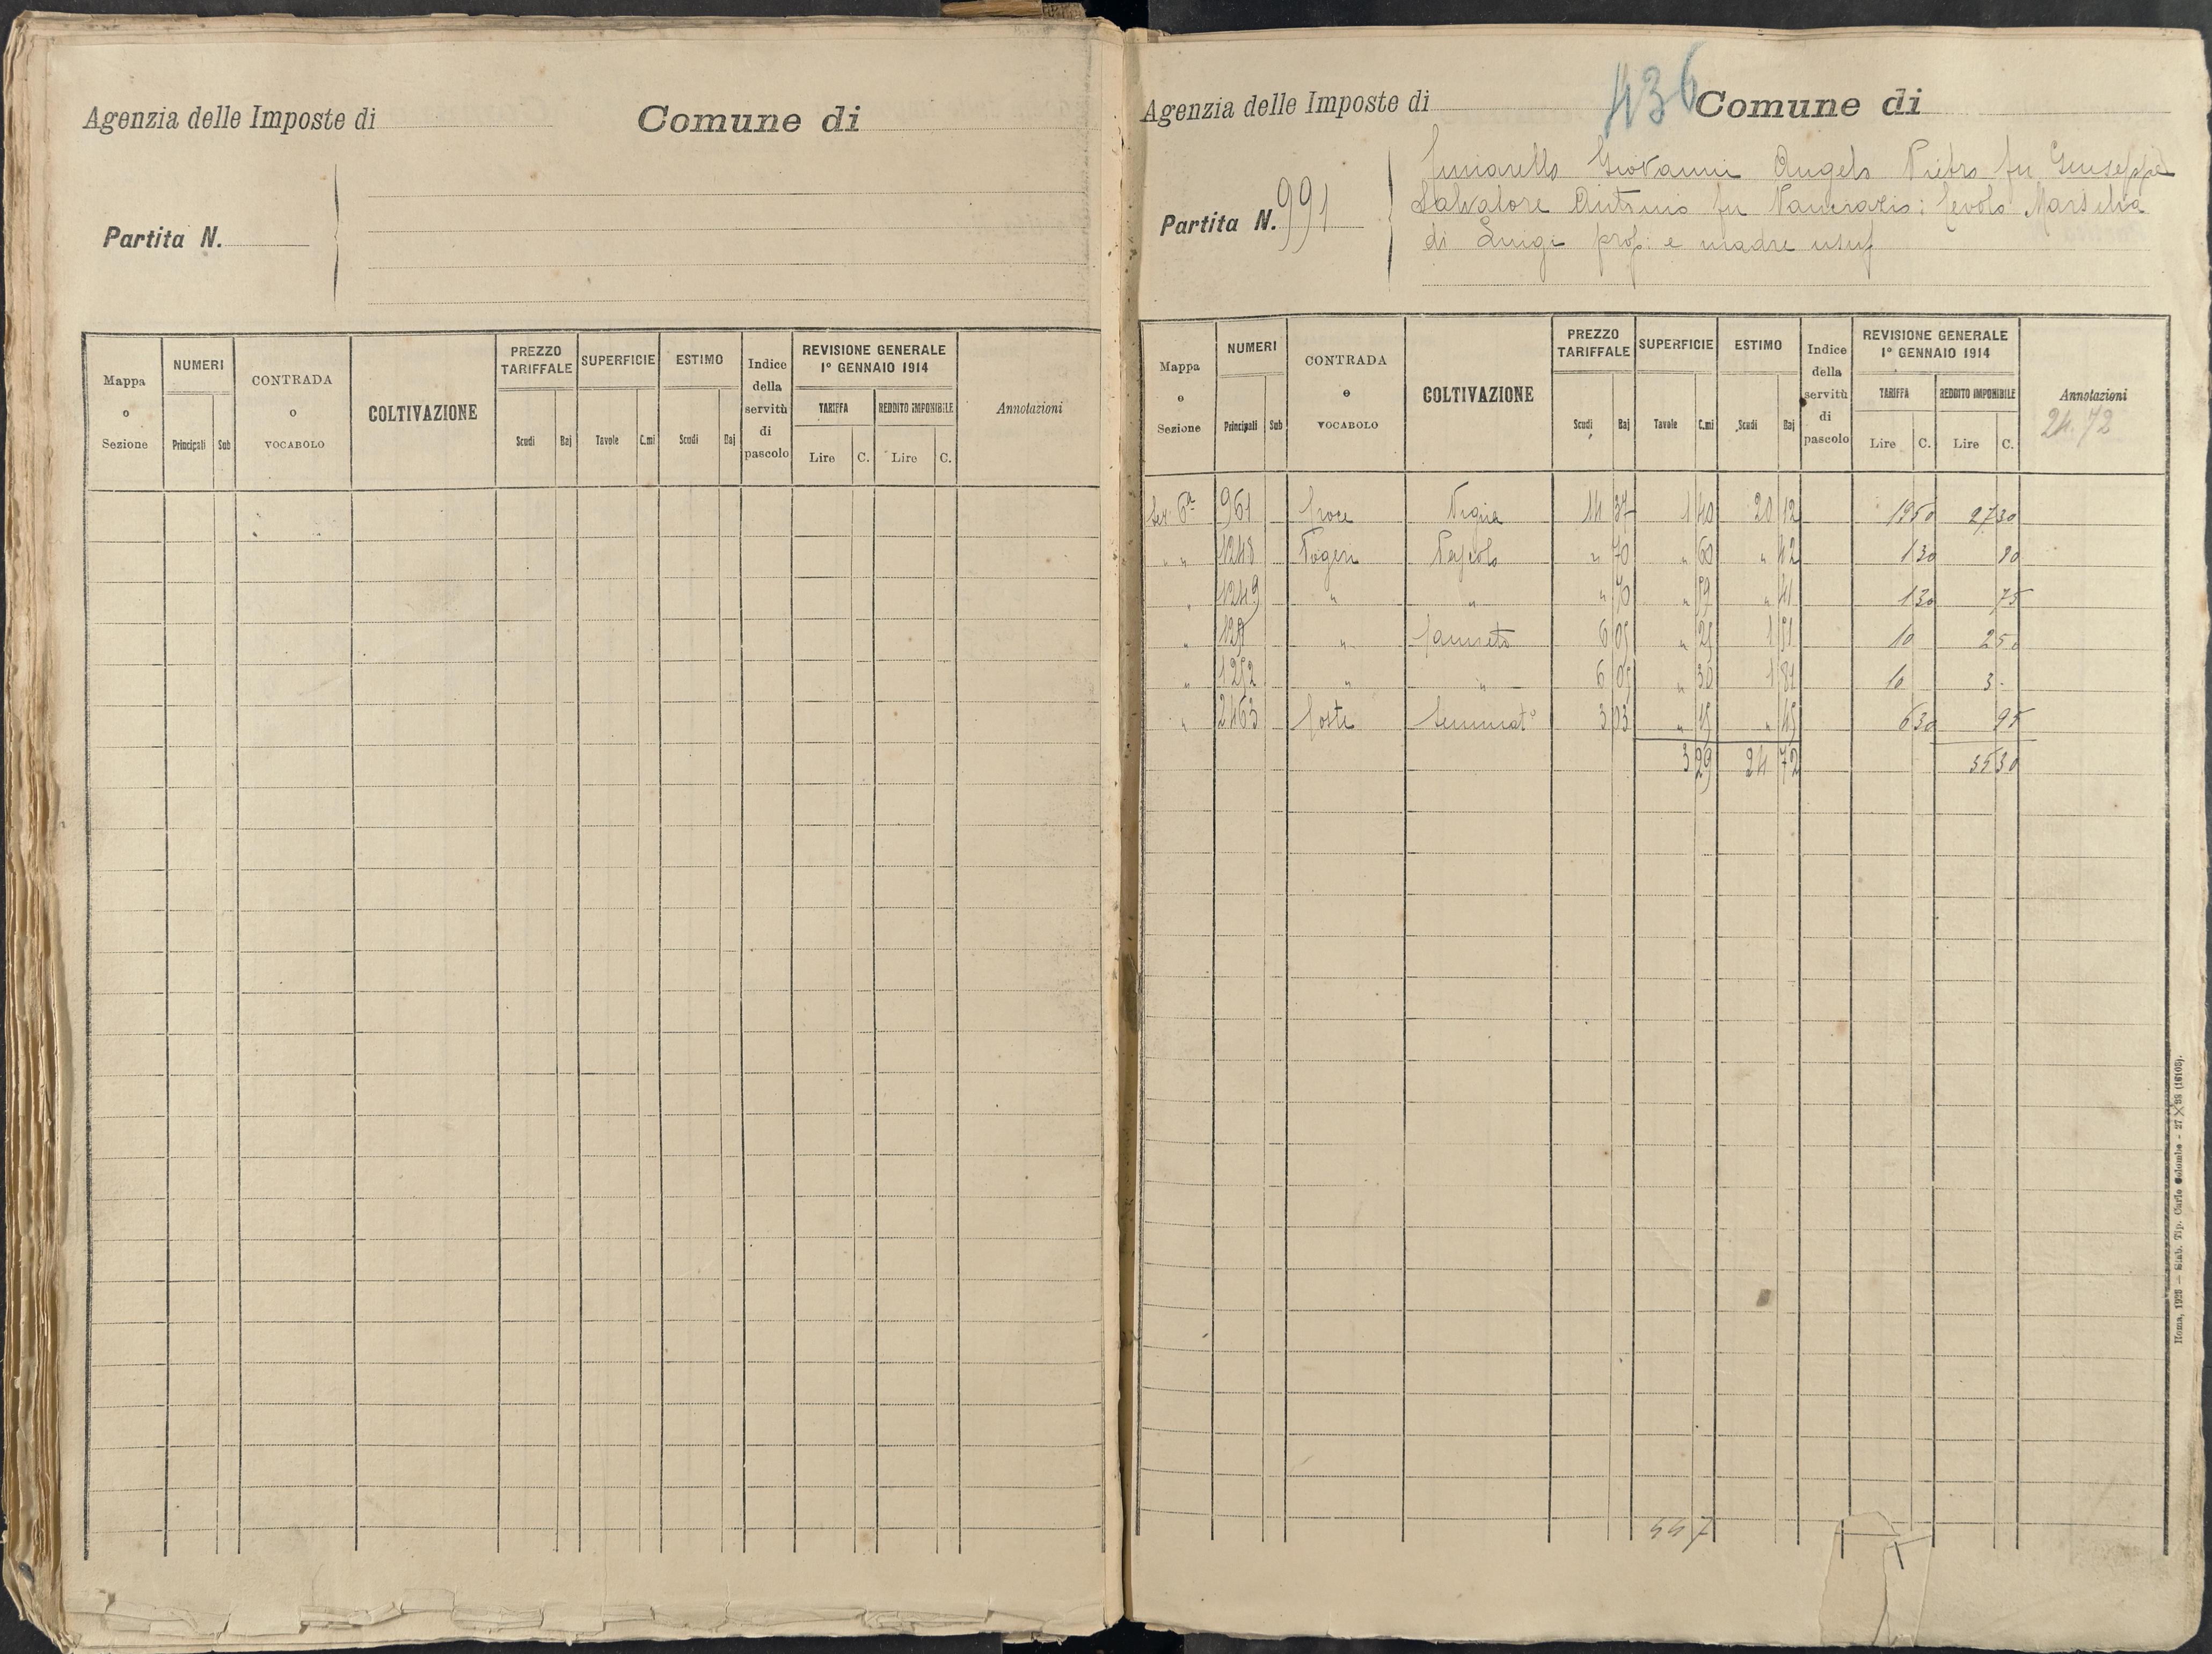 Agenzia delle Imposte di
Comune di
Partita N.
Mappa
o
Sezione
NUMERI
Principali
Sub
CONTRADA
o
VOCABOLO
COLTIVAZIONE
PREZZO
TARIFFALE
Scudi
Baj
SUPERFICIE
Tavole
C.mi
ESTIMO
Scudi
Baj
Indice
della
servitù
di
pascolo
REVISIONE GENERALE
1° GENNAIO 1914
TARIFFA
REDDITO IMPONIBILE
Lire
C.
Lire
C.
Annotazioni
436
Agenzia delle Imposte di
Comune di
Partita N. 991
Giovanni Angelo Pietro fu Giuseppe
Salvatore Antonio fu Pancrazio: Cevolo Marsilia
di Luigi prop: e madre usuf
Mappa
o
Sezione
NUMERI
Principali
Sub
CONTRADA
o
VOCABOLO
COLTIVAZIONE
PREZZO
TARIFFALE
Scudi
Baj
SUPERFICIE
Tavole
C.mi
ESTIMO
Scudi
Baj
Indice
della
servitù
di
pascolo
REVISIONE GENERALE
1° GENNAIO 1914
TARIFFA
REDDITO IMPONIBILE
Lire
C.
Lire
C.
Annotazioni
24.72
Sez. 6ª 961 Croce Vigna 14 37 1 40 20 12 19 50 27 30
" " 1248 Pascolo " 70 " 60 " 42 1 30 80
" 1249 " " " 70 " 59 " 41 1 30 75
" " Canneto 6 05 " 25 1 51 10 2 50
" 1252 " " 6 05 " 30 1 81 10 3 -
" 2463 Coste Seminatº 3 03 " 15 " 45 6 30 95
3 29 24 72 35 30
557
Roma, 1923 — Stab. Tip. Carlo Colombo - 27 X 98 (16103).